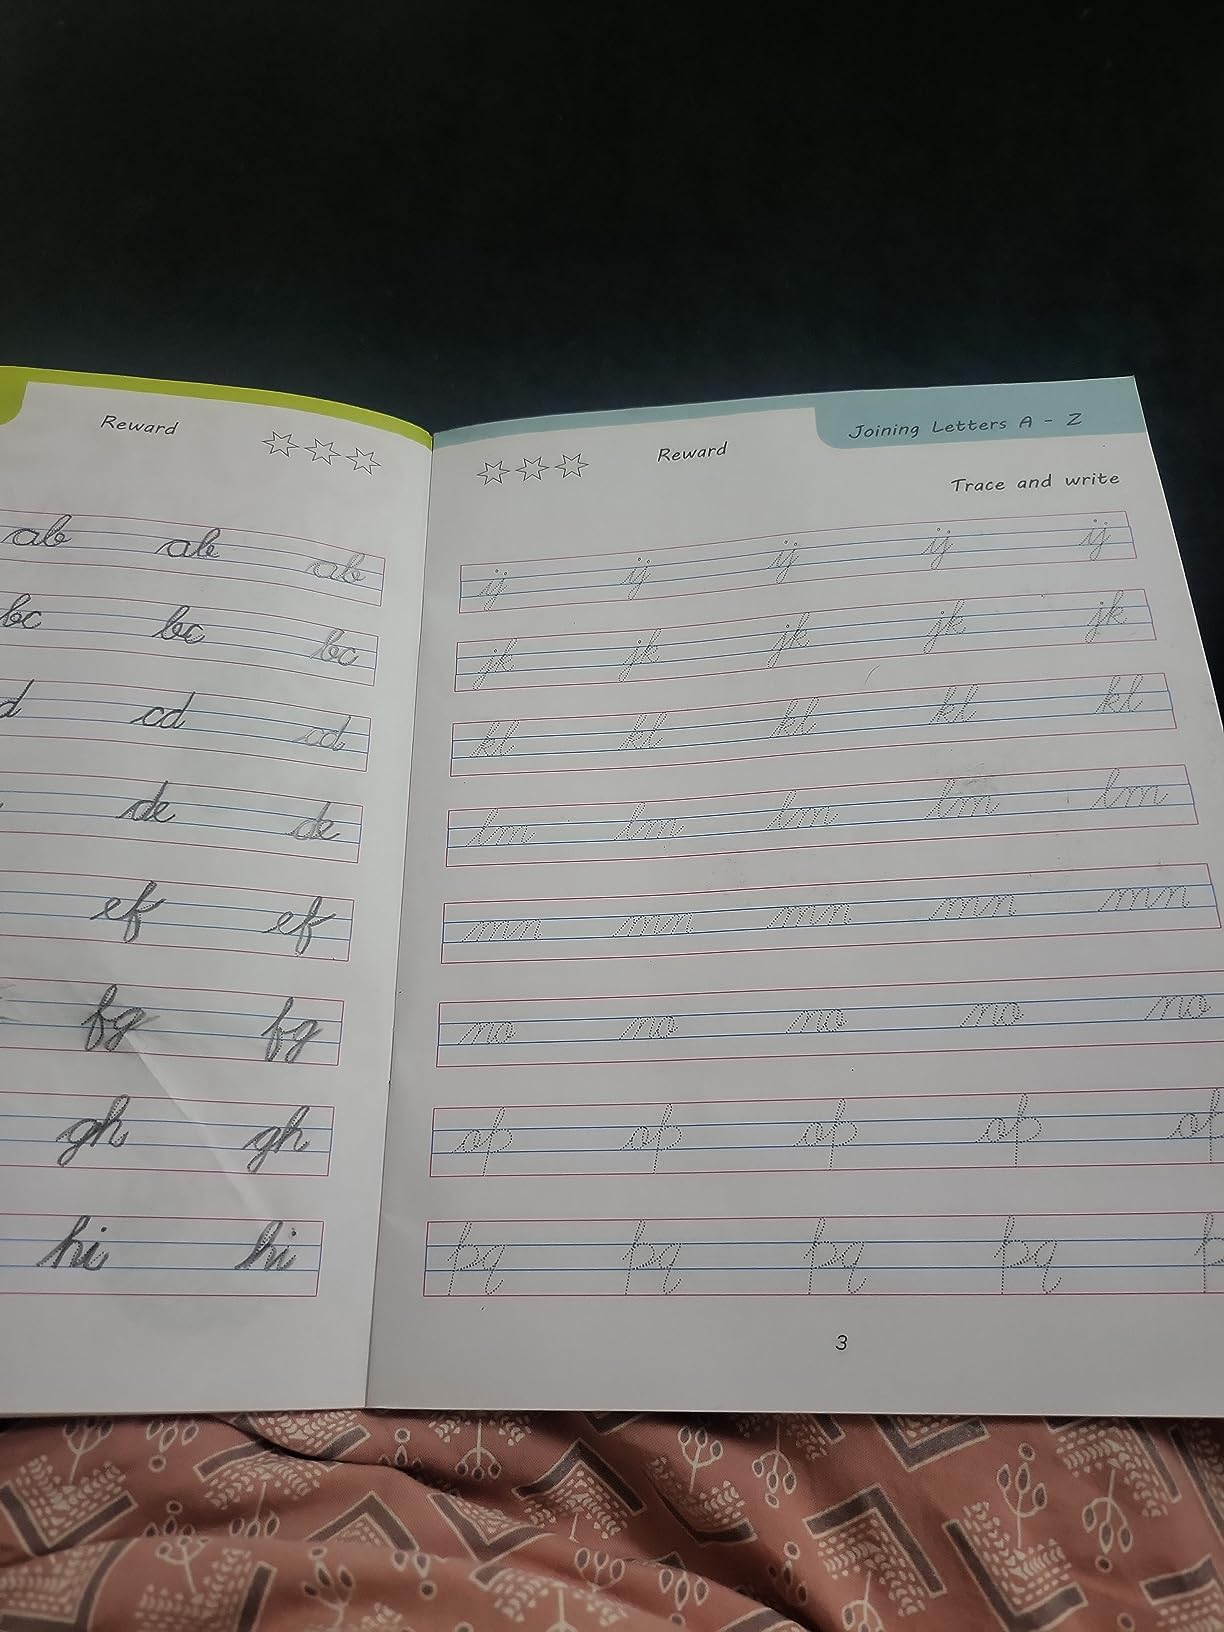 Reward
ab ab ab
bc bc bc
d cd cd
de de
ef ef
fg fg
gh gh
hi hi
Joining Letters A - Z
Reward
Trace and write
ij ij ij ij ij
jk jk jk jk jk
kl kl kl kl kl
lm lm lm lm lm
mn mn mn mn mn
no no no no no
op op op op op
pq pq pq pq p
3